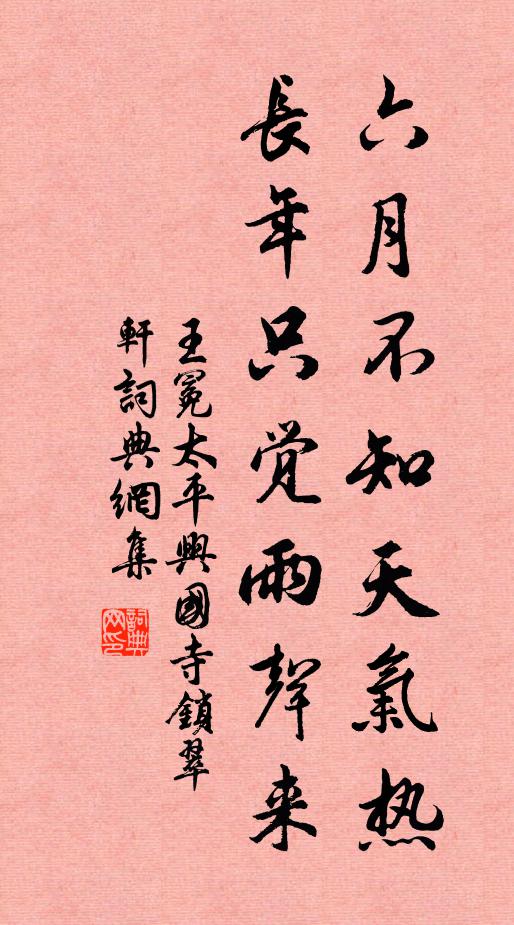 六月不知天氣热
長年只覚雨聲来
王冕太平興國寺鎖翠
軒詞典網集
詞典网印